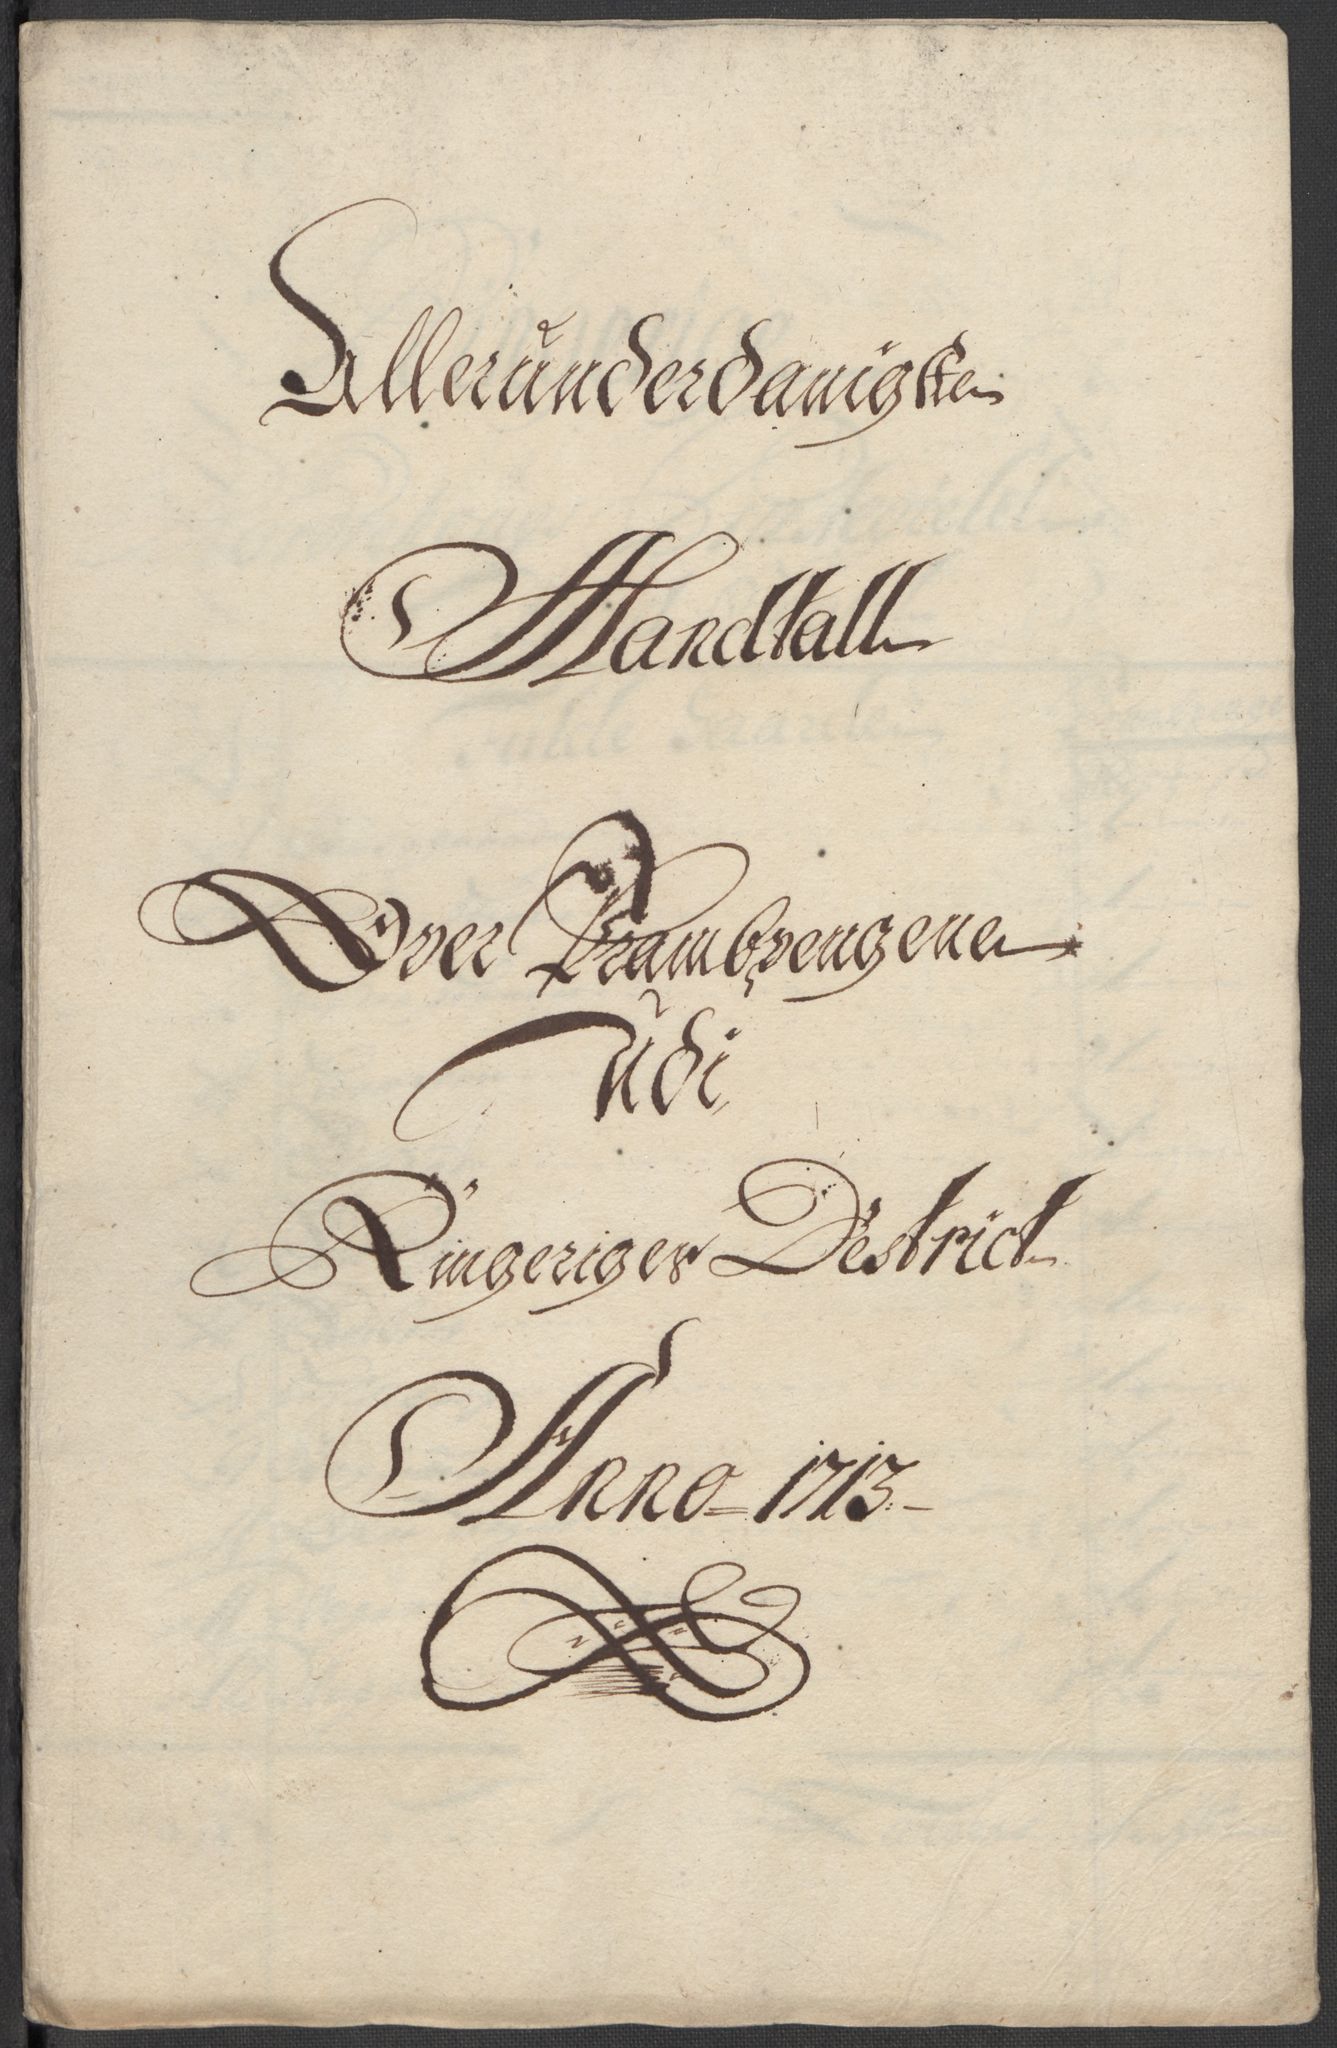 Allerunderdanigste
Mandtall
Over Qvæmbpengene
Udi
Ringeriges Destrict
Anno 1713